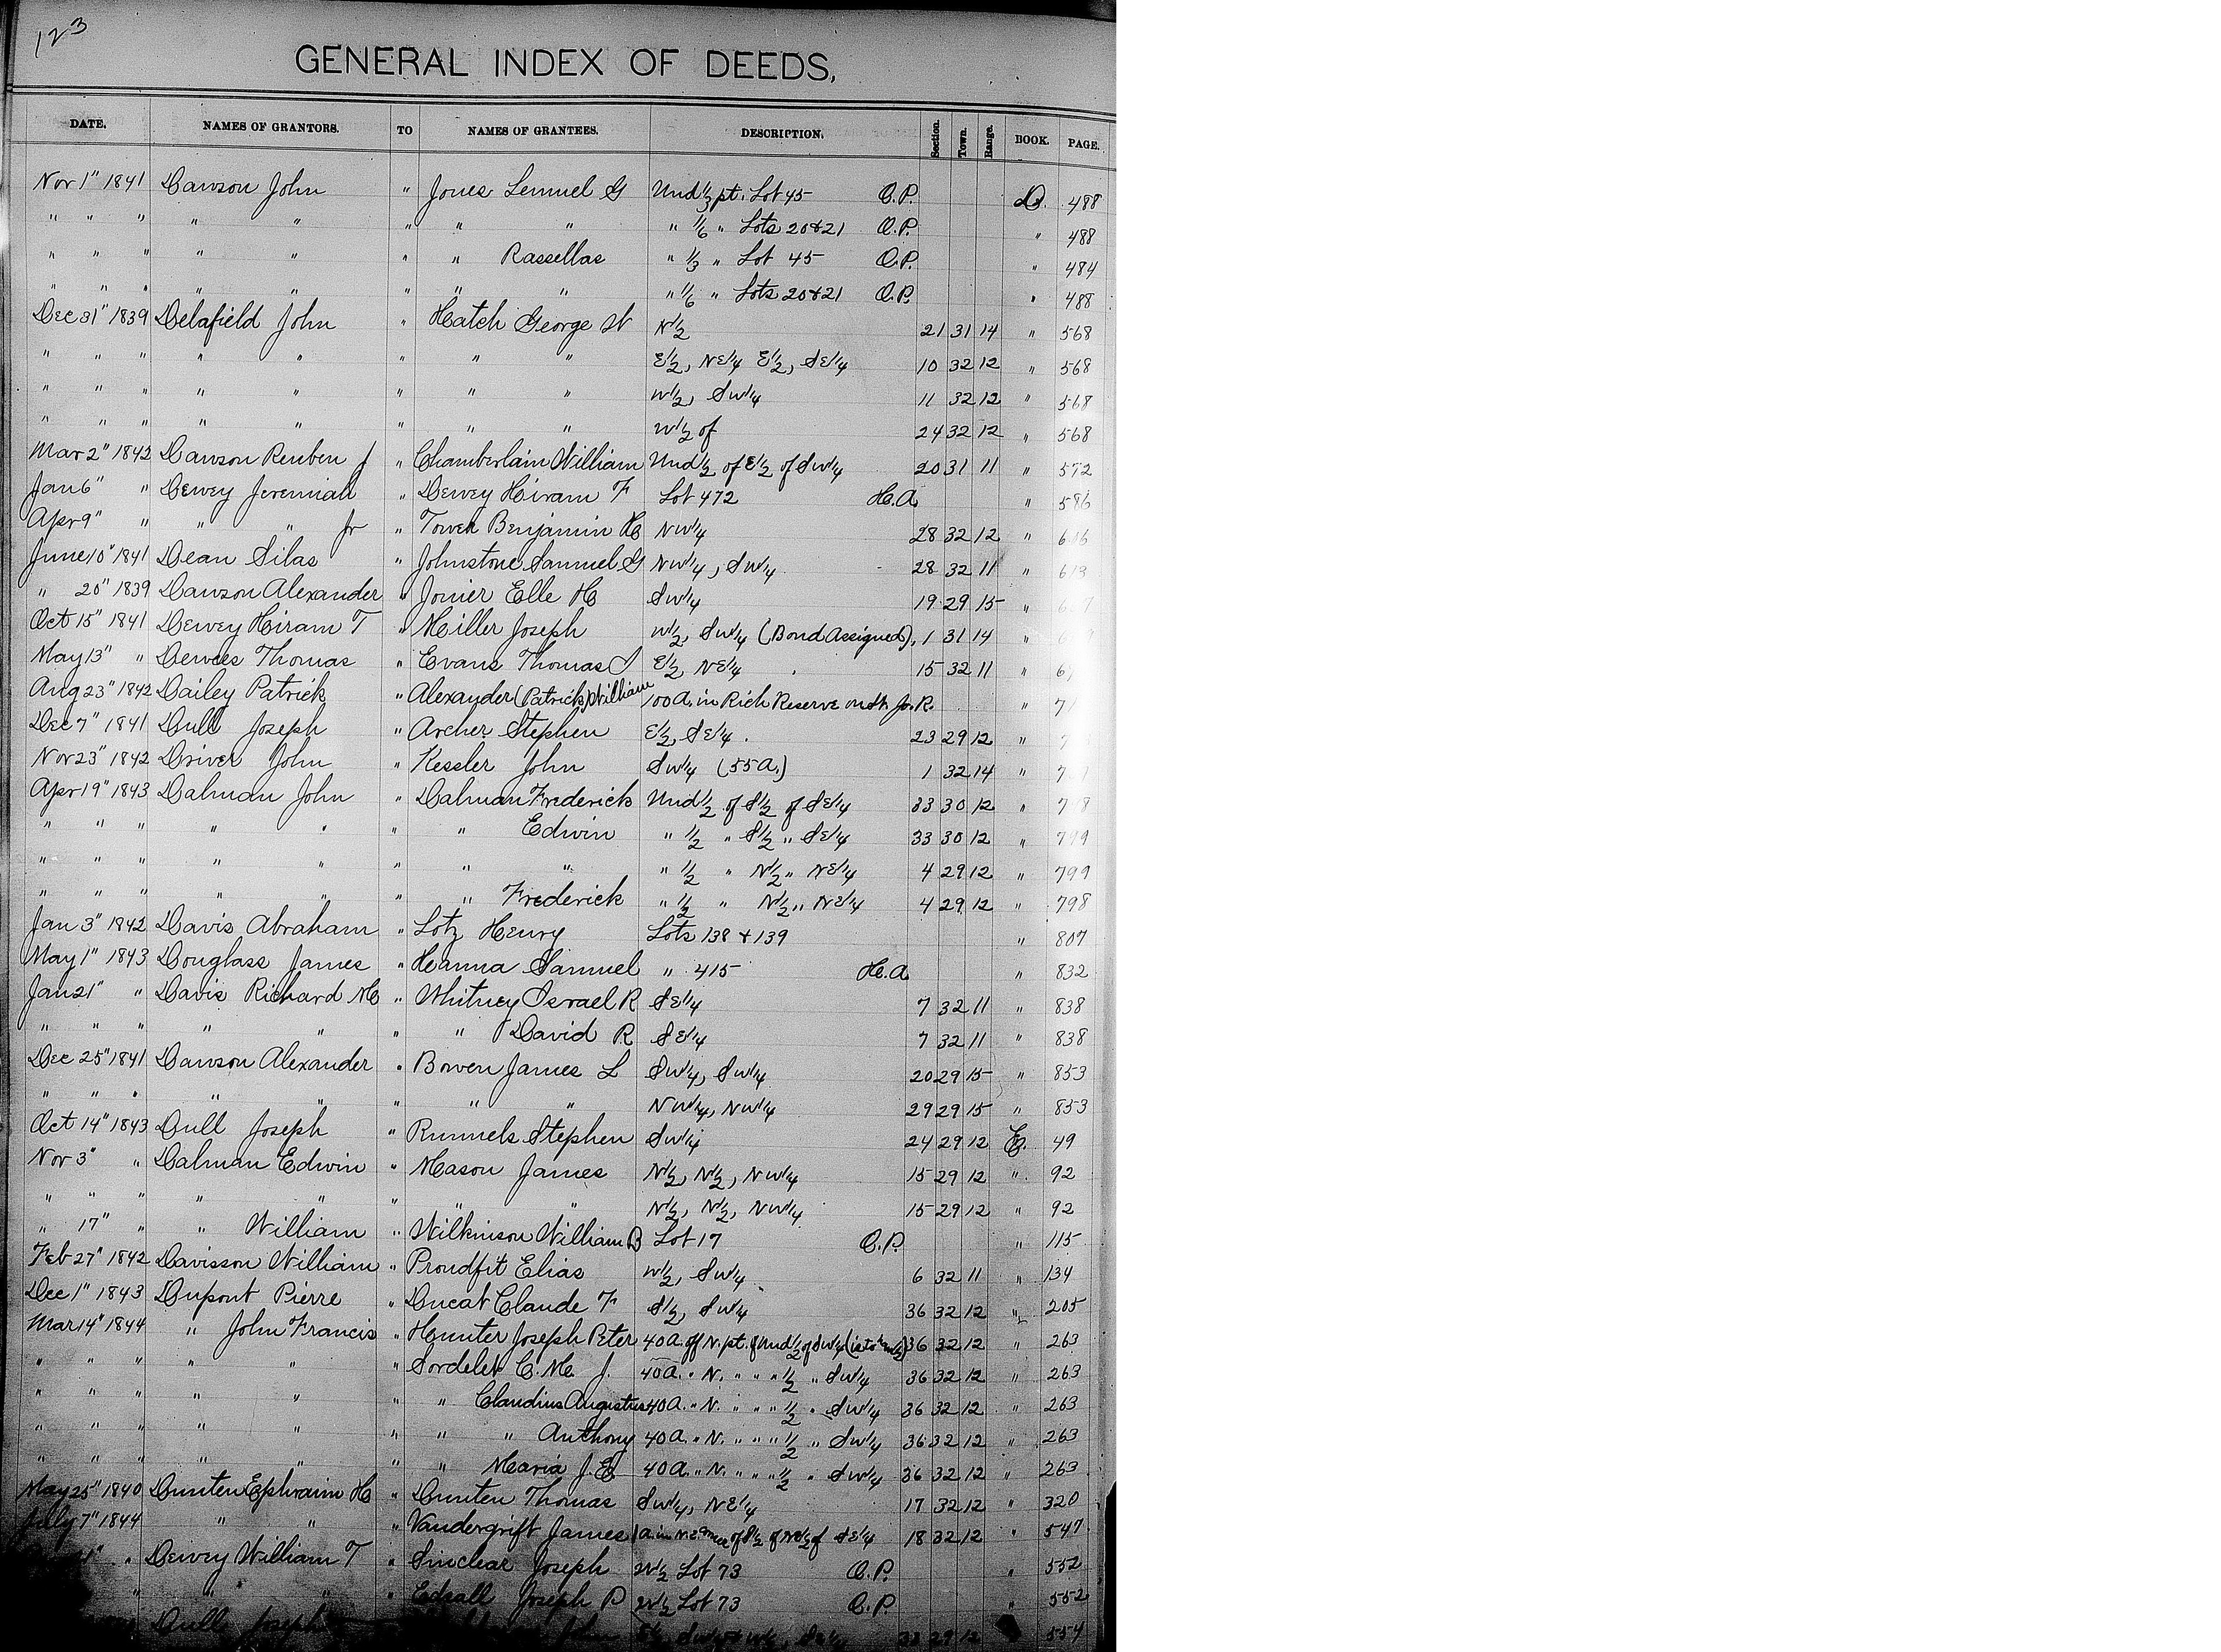 123
GENERAL INDEX OF DEEDS,
DATE. NAMES OF GRANTORS. TO NAMES OF GRANTEES. DESCRIPTION. Section. Town. Range. BOOK. PAGE.
Nov 1" 1841 Dawson John " Jones Lemuel G Und 1/3 pt. Lot 45 O.P. D. 488
" " " " " " " " " 1/6 " Lots 20 & 21 O.P. " 488
" " " " " " " Rassellas " 1/3 " Lot 45 O.P. " 484
" " " " " " " " " 1/6 " Lots 20 & 21 O.P. " 488
Dec 31" 1839 Delafield John " Hatch George W N1/2 21 31 14 " 568
" " " " " " " " E1/2, NE1/4 E1/2, SE1/4 10 32 12 " 568
" " " " " " " " W1/2, SW1/4 11 32 12 " 568
" " " " " " " " W1/2 of 24 32 12 " 568
Mar 2" 1842 Dawson Reuben J " Chamberlain William Und 1/2 of E1/2 of SW1/4 20 31 11 " 572
Jan 6" " Dewey Jeremiah " Dewey Hiram F Lot 472 H.A. " 586
Apr 9" " " " Jr " Tower Benjamin H NW1/4 28 32 12 "
June 10" 1841 Dean Silas " Johnstone Samuel G NW1/4, SW1/4 28 32 11 "
" 20" 1839 Dawson Alexander " Joiner Elle H SW1/4 19 29 15 "
Oct 15" 1841 Dewey Hiram T " Miller Joseph W1/2, SW1/4 (Bond Assigned), 1 31 14 "
May 13" " Dewees Thomas " Evans Thomas J E1/2, NE1/4 15 32 11 "
Aug 23" 1842 Dailey Patrick " Alexander (Patrick) William 100 A. in Rich Reserve on St. Jo. R. "
Dec 7" 1841 Dull Joseph " Archer Stephen E1/2, SE1/4 23 29 12 "
Nov 23" 1842 Driver John " Kessler John SW1/4 (55 A.) 1 32 14 "
Apr 19" 1843 Dalman John " Dalman Frederick Und 1/2 of S1/2 of SE1/4 33 30 12 "
" " " " " " " Edwin " 1/2 " S1/2 " SE1/4 33 30 12 " 799
" " " " " " " " " 1/2 " N1/2 " NE1/4 4 29 12 " 799
" " " " " " " Frederick " 1/2 " N1/2 " NE1/4 4 29 12 " 798
Jan 3" 1842 Davis Abraham " Lotz Henry Lots 138 & 139 " 807
May 1" 1843 Douglass James " Hanna Samuel " 415 H.A " 832
Jan 21" " Davis Richard M " Whitney Israel R SE1/4 7 32 11 " 838
" " " " " " " David R SE1/4 7 32 11 " 838
Dec 25" 1841 Dawson Alexander " Bowen James L SW1/4, SW1/4 20 29 15 " 853
" " " " " " " " NW1/4, NW1/4 29 29 15 " 853
Oct 14" 1843 Dull Joseph " Runnels Stephen SW1/4 24 29 12 E. 49
Nov 3" " Dalman Edwin " Mason James N1/2, N1/2, NW1/4 15 29 12 " 92
" " " " " " " " N1/2, N1/2, NW1/4 15 29 12 " 92
" 17" " " William " Wilkinson William B Lot 17 O.P. " 115
Feb 27" 1842 Davisson William " Proudfit Elias W1/2, SW1/4 6 32 11 " 134
Dec 1" 1843 Dupont Pierre " Ducat Claude F S1/2, SW1/4 36 32 12 " 205
Mar 14" 1844 " John Francis " Hunter Joseph Peter 40 A. off N. pt. of Und 1/2 of SW1/4 36 32 12 " 263
" " " " " " Sordelet C. M. J. 40 A. " N. " " " 1/2 " SW1/4 36 32 12 " 263
" " " " " " " Claudius Augustus 40 A. " N. " " " 1/2 " SW1/4 36 32 12 " 263
" " " " " " " " Anthony 40 A. " N. " " " 1/2 " SW1/4 36 32 12 " 263
" " " " " " " Maria J. E. 40 A. " N. " " " 1/2 " SW1/4 36 32 12 " 263
May 25" 1840 Dunten Ephraim H " Dunten Thomas SW1/4, NE1/4 17 32 12 " 320
July 7" 1844 " " " Vandergrift James 1 A in N.E. of S1/2 of of SE1/4 18 32 12 " 547
" Dewey William T " Sinclear Joseph W1/2 Lot 73 O.P. " 552
" " " " Edsall Joseph P W1/2 Lot 73 O.P. " 552
Dull Joseph 33 29 12 554